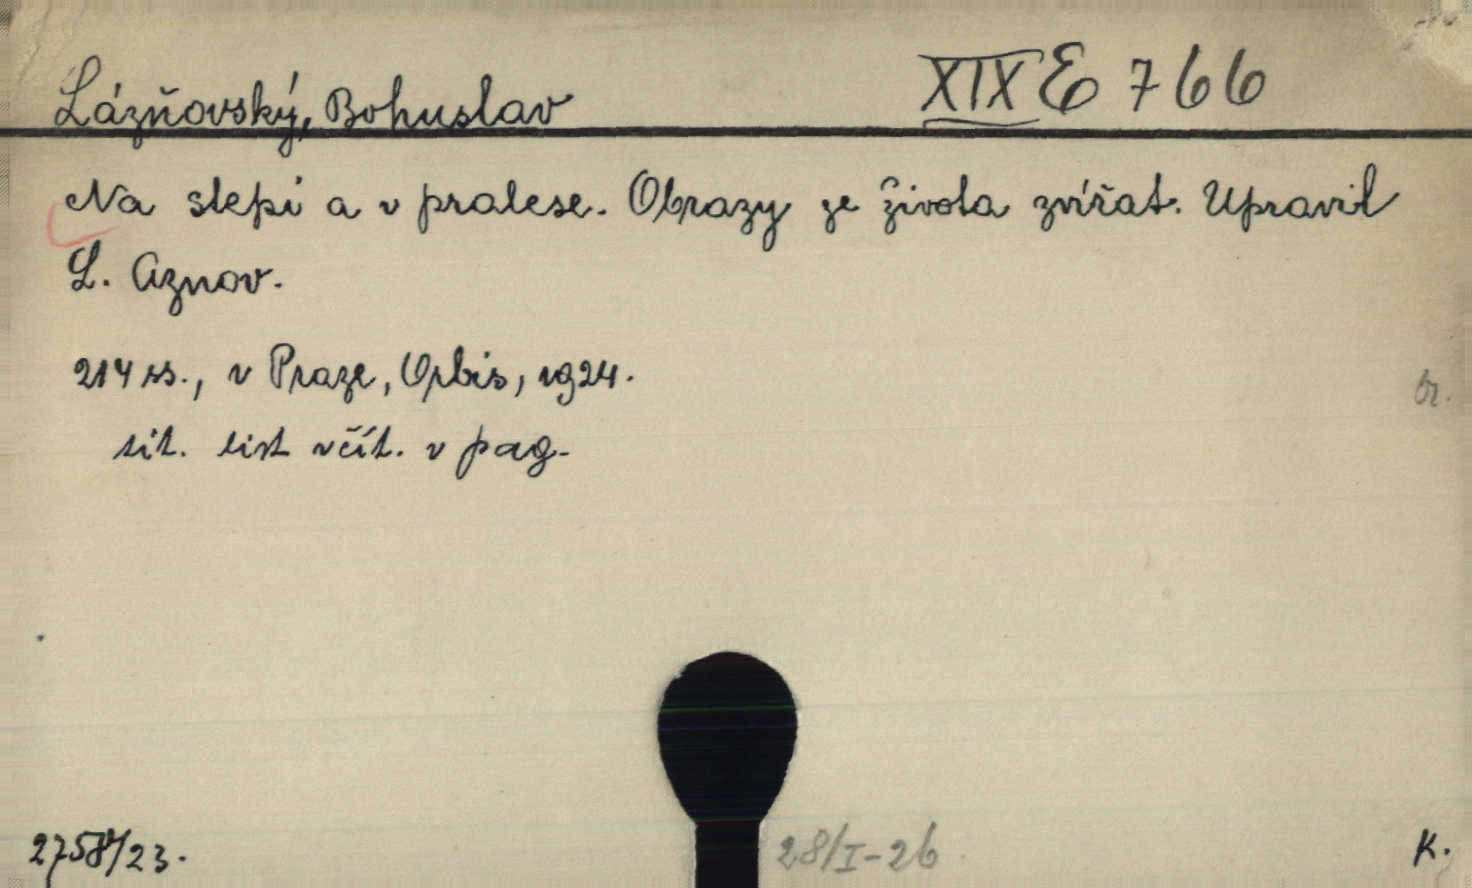 Lázňovský, Bohuslav XIX E 766
Na stepi a v pralese. Obrazy ze života zvířat. Upravil
L. Aznov.
214 ss., v Praze, Orbis, 1924.
br.
tit. list včít. v pag.
2758/23. 28/I-26 K.